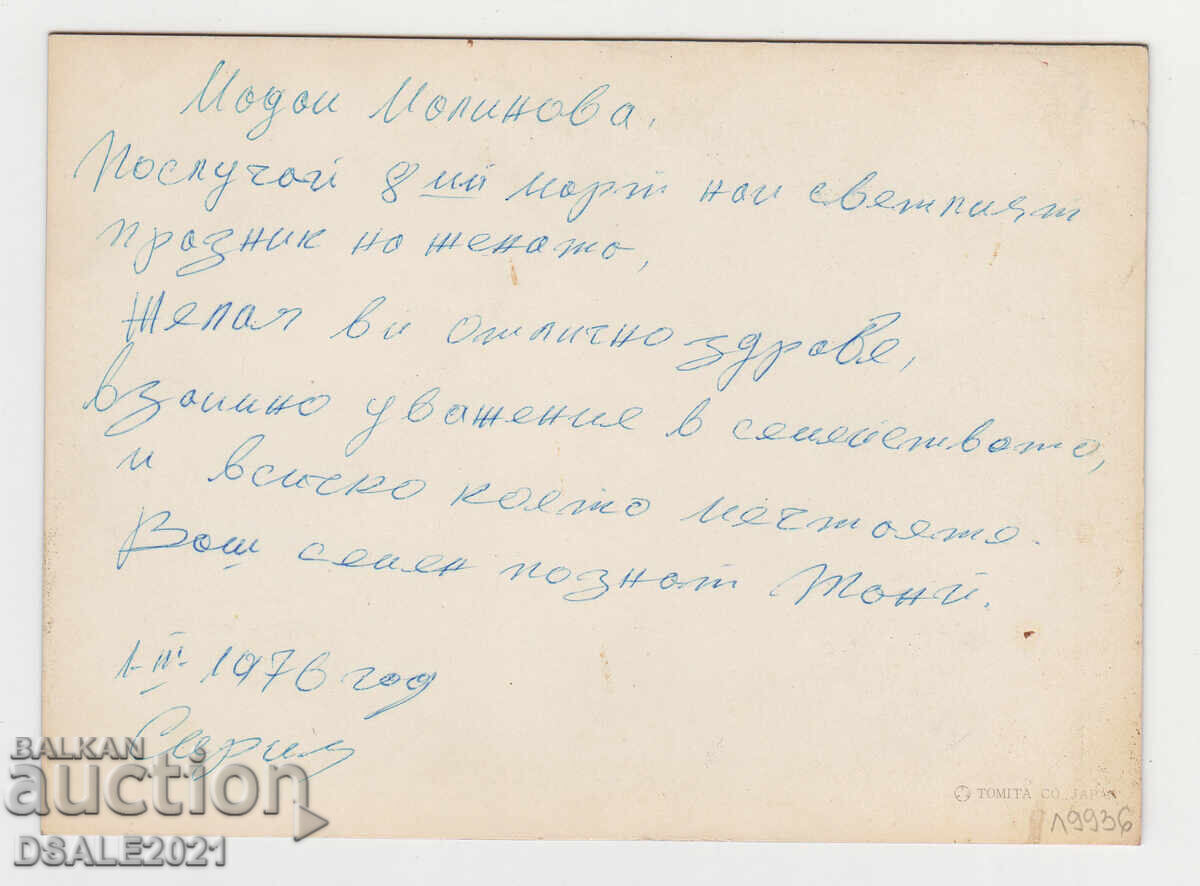 Мадам Малинова,
Послучай 8ми март най светлият
празник на жената,
Желая ви отлично здраве,
взаимно уважение в семейството,
и всичко което мечтаете.
Ваш семеен познат Тони.
1-III-1976 год
Сирия
BALKAN
auction
DSALE2021
TOMITA CO. JAPAN
19936